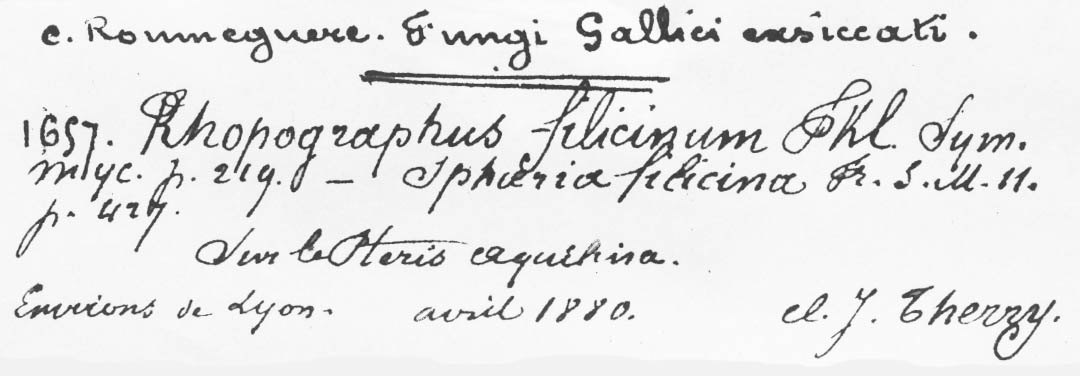 C. Roumeguere. Fungi Gallici exsiccati.
1657. Rhopographus filicinum Fkl. Sym.
myc. p. 219. — Sphæria filicina Fr. S. M. 11.
p. 427.
Sur le Pteris aquilina.
Environs de Lyon. avril 1880. cl. J. Therry.